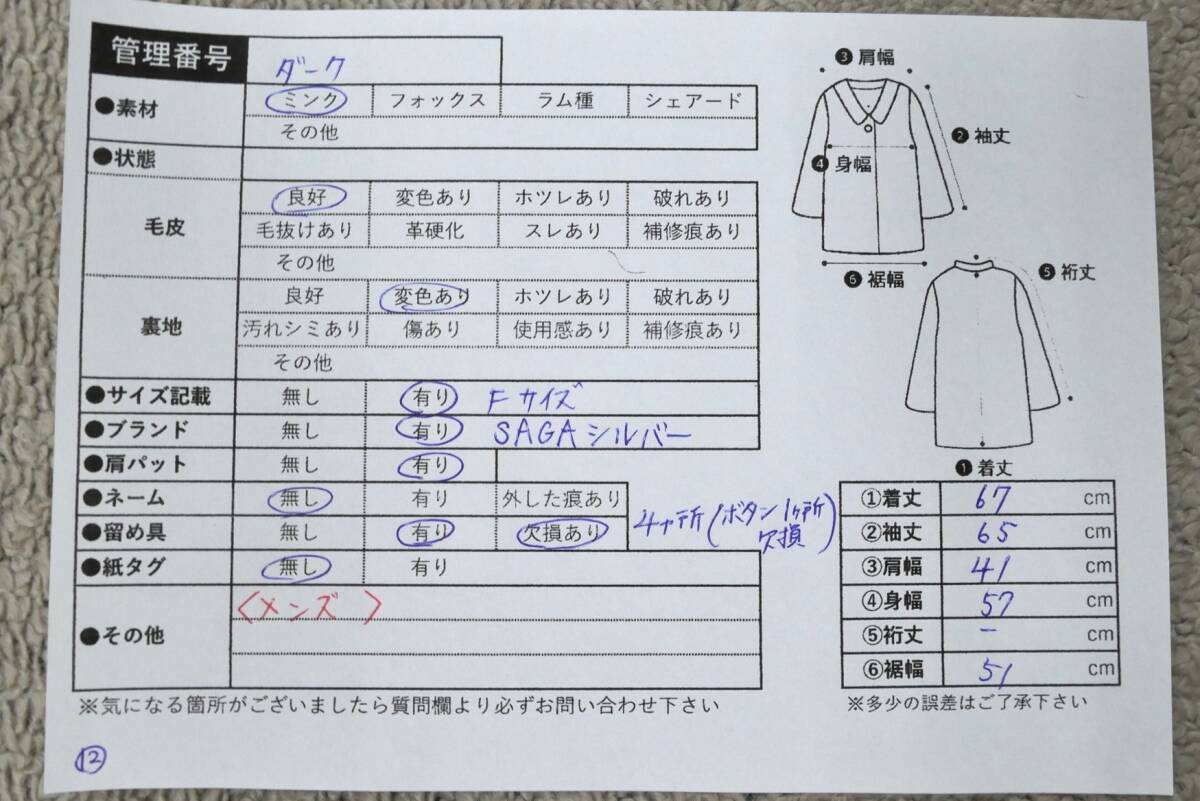 管理番号
ダーク
●素材 ミンク フォックス ラム種 シェアード
その他
●状態
毛皮
良好 変色あり ホツレあり 破れあり
毛抜けあり 革硬化 スレあり 補修痕あり
その他
裏地
良好 変色あり ホツレあり 破れあり
汚れシミあり 傷あり 使用感あり 補修痕あり
その他
●サイズ記載 無し 有り Fサイズ
●ブランド 無し 有り SAGAシルバー
●肩パット 無し 有り
●ネーム 無し 有り 外した痕あり
●留め具 無し 有り 欠損あり 4ヶ所(ボタン1ヶ所欠損)
●紙タグ 無し 有り
●その他
〈メンズ 〉
※気になる箇所がございましたら質問欄より必ずお問い合わせ下さい
⑫
❸肩幅
❷袖丈
❹身幅
❻裾幅
❺裄丈
❶着丈
①着丈 67 cm
②袖丈 65 cm
③肩幅 41 cm
④身幅 57 cm
⑤裄丈 - cm
⑥裾幅 51 cm
※多少の誤差はご了承下さい